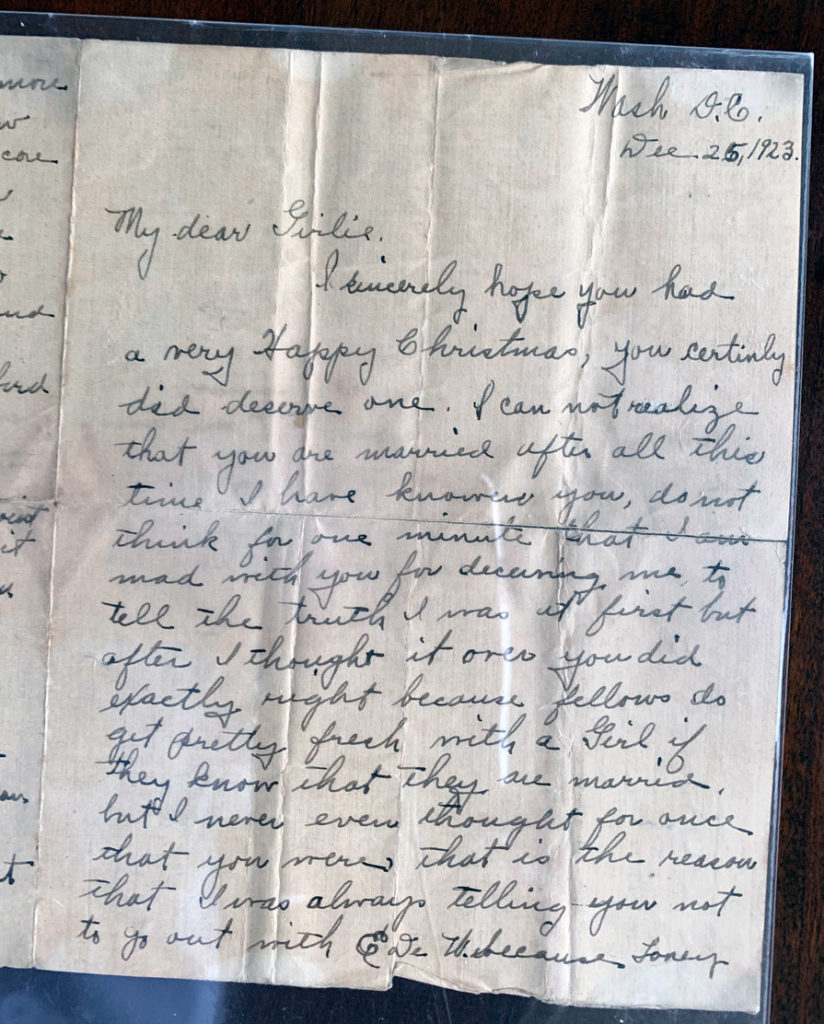 more
w
core
und
ford
it
Wash D.C.
Dec. 25, 1923.
My dear Girlie.
I sincerely hope you had
a very Happy Christmas, you certinly
did deserve one. I can not realize
that you are married after all this
time I have knowen you, do not
think for one minute that I am
mad with you for deceiving me, to
tell the truth I was at first but
after I thought it over you did
exactly right because fellows do
get pretty fresh with a Girl if
they know that they are married,
but I never even thought for once
that you were, that is the reason
that I was always telling you not
to go out with De W. because